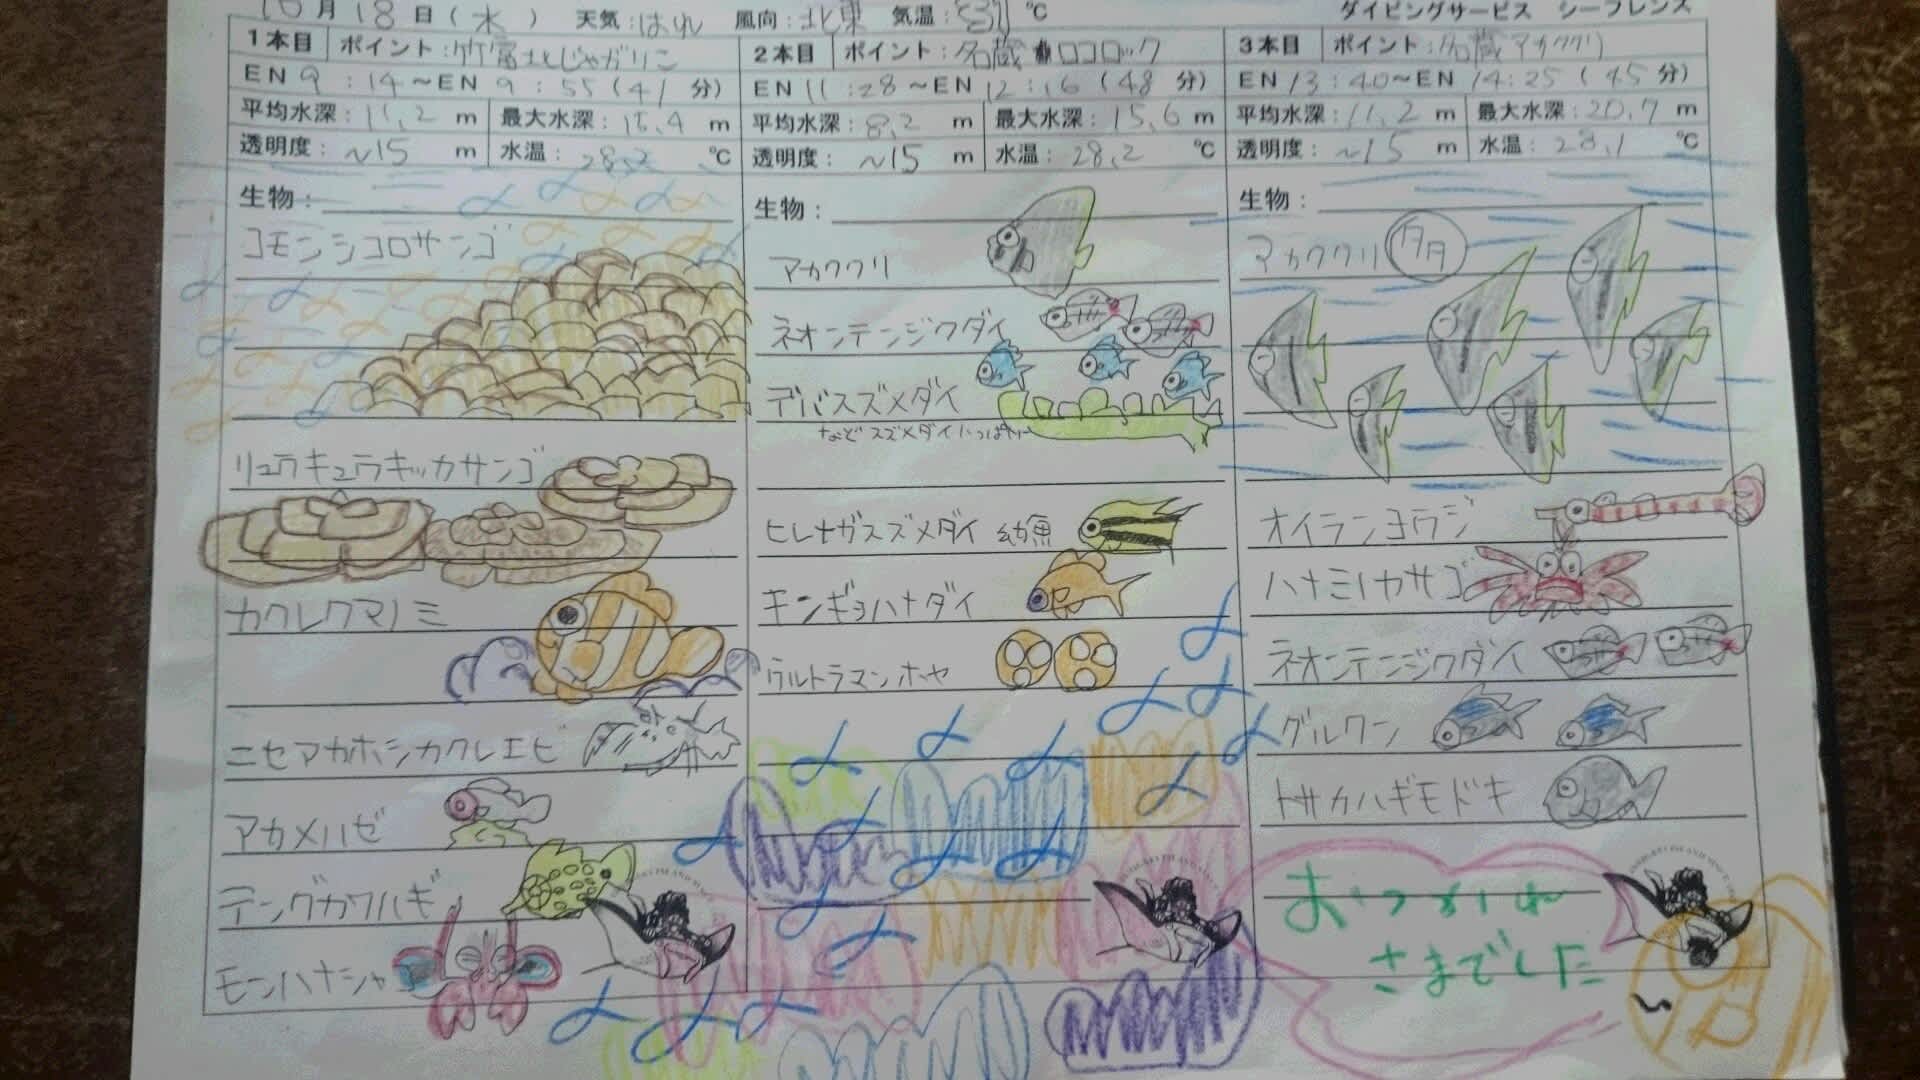 10月18日(水) 天気:はれ 風向:北東 気温:31℃ ダイビングサービス シーフレンズ
1本目 ポイント:竹富北じゃがりこ
EN 9:14～EN 9:55(41分)
平均水深:11.2m 最大水深:15.4m
透明度:~15m 水温:28.2℃
生物:
コモンシコロサンゴ
リュウキュウキッカサンゴ
カクレクマノミ
ニセアカホシカクレエビ
アカメハゼ
テングカワハギ
モンハナシャコ
2本目 ポイント:名蔵 ロコロック
EN 11:28～EN 12:16(48分)
平均水深:8.2m 最大水深:15.6m
透明度:~15m 水温:28.2℃
生物:
アカククリ
ネオンテンジクダイ
デバスズメダイ
などスズメダイいっぱい
ヒレナガスズメダイ 幼魚
キンギョハナダイ
ウルトラマンホヤ
3本目 ポイント:名蔵アカククリ
EN 13:40～EN 14:25(45分)
平均水深:11.2m 最大水深:20.7m
透明度:~15m 水温:28.1℃
生物:
アカククリ
オイランヨウジ
ハナミノカサゴ
ネオンテンジクダイ
グルクン
トサカハギモドキ
おつかれ
さまでした